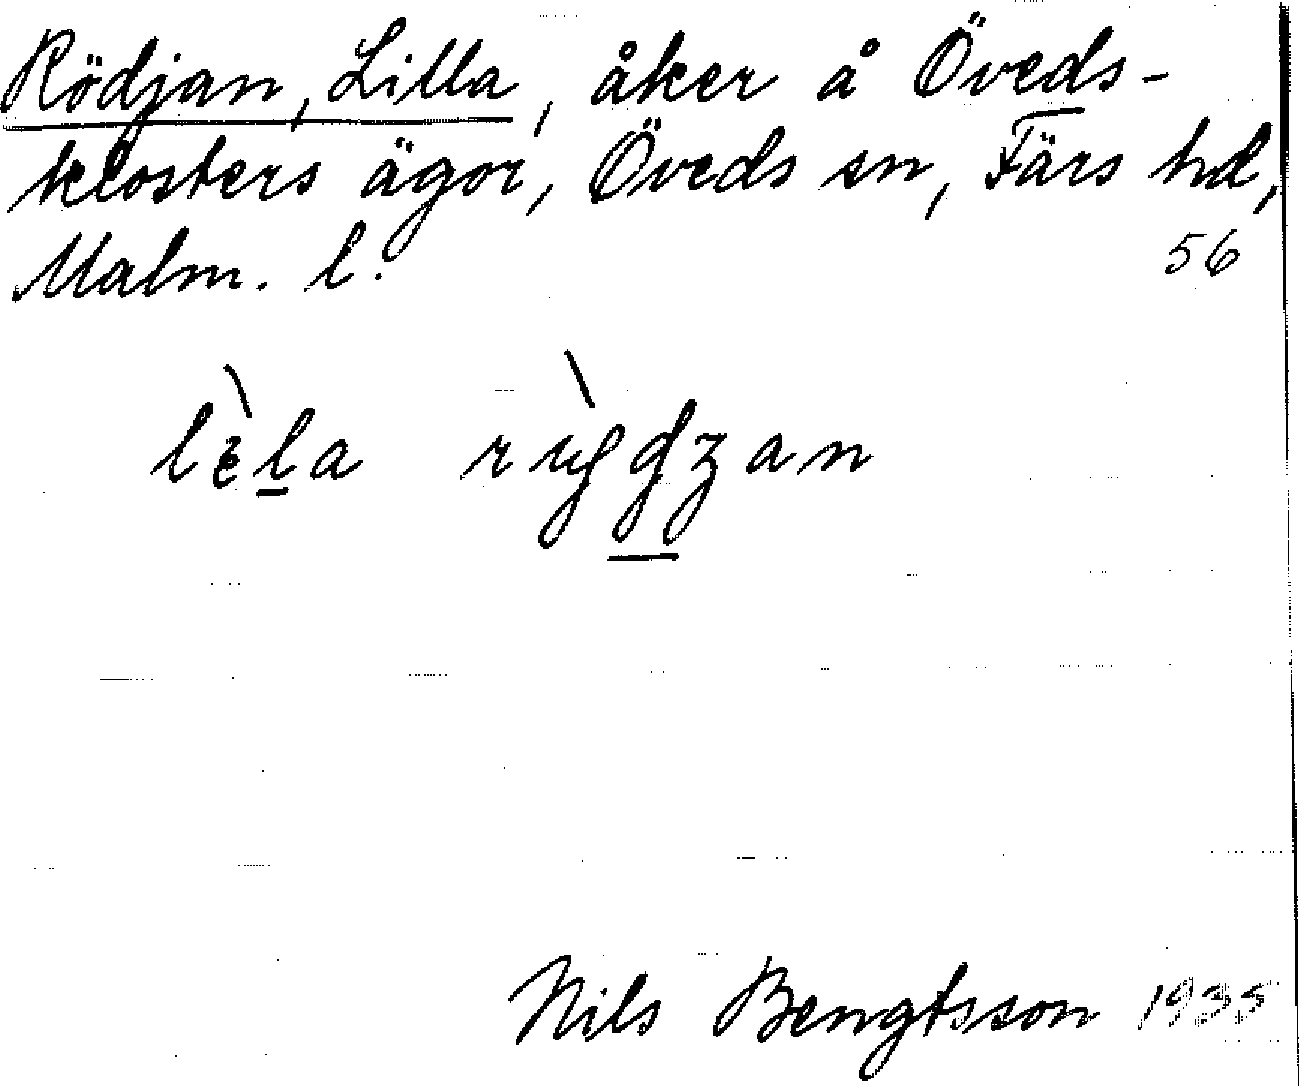 Rödjan, Lilla, åker å Öveds-
klosters ägor, Öveds sn, Färs hd,
Malm. l.
56
Nils Bengtsson 1935